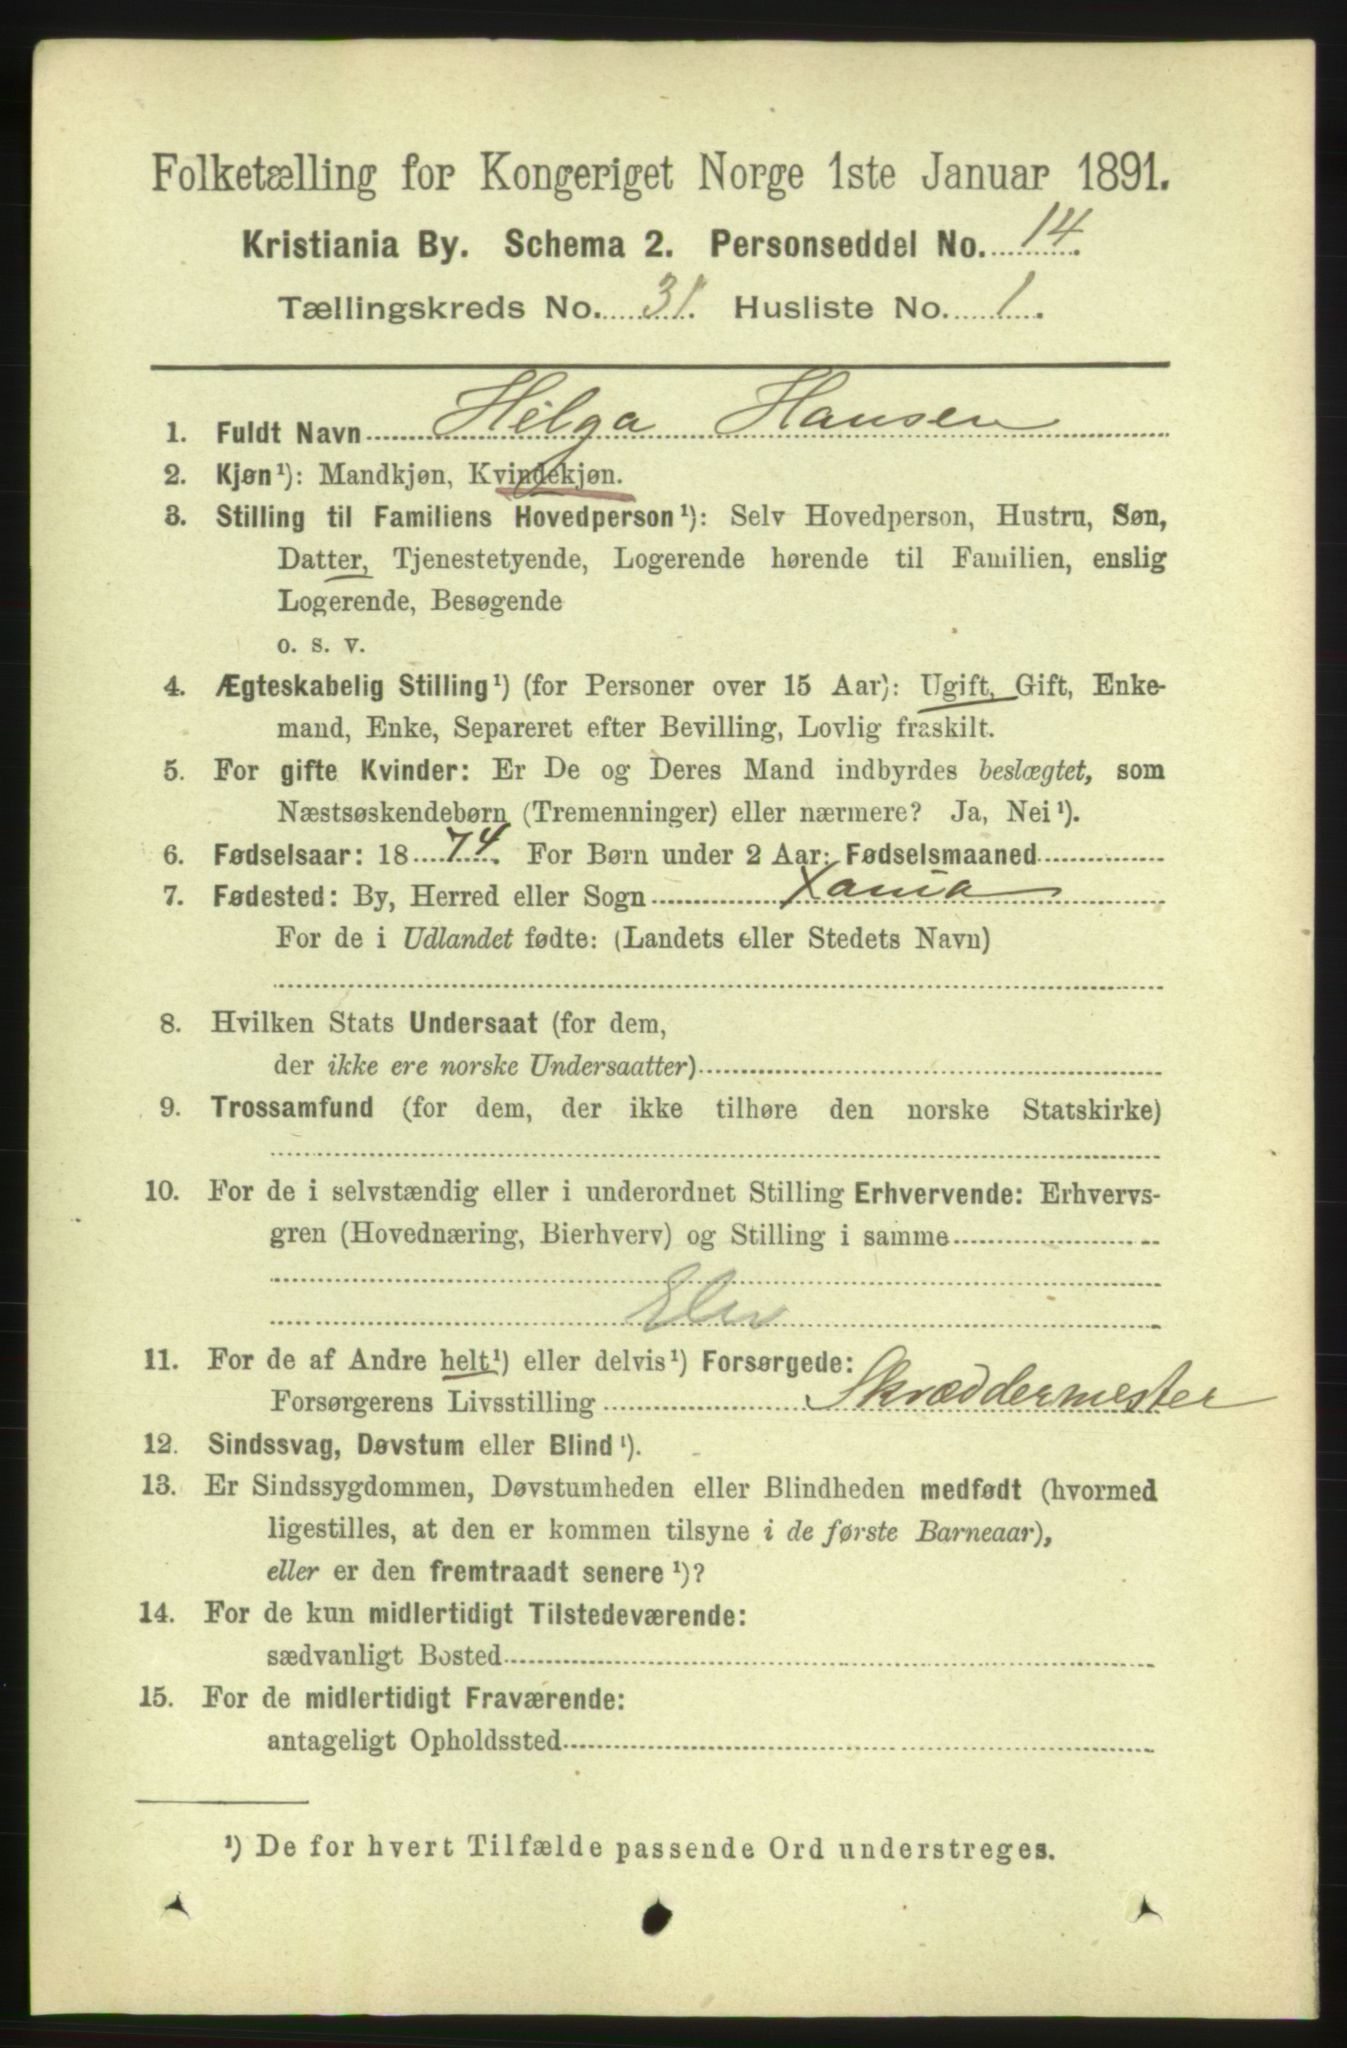 Folketælling for Kongeriget Norge 1ste Januar 1891.
Kristiania By. Schema 2. Personseddel No. 14.
Tællingskreds No. 31. Husliste No. 1.
1. Fuldt Navn Helga Hansen
2. Kjøn¹): Mandkjøn, Kvindekjøn.
3. Stilling til Familiens Hovedperson¹): Selv Hovedperson, Hustru, Søn,
Datter, Tjenestetyende, Logerende hørende til Familien, enslig
Logerende, Besøgende
o. s. v.
4. Ægteskabelig Stilling¹) (for Personer over 15 Aar): Ugift, Gift, Enke-
mand, Enke, Separeret efter Bevilling, Lovlig fraskilt.
5. For gifte Kvinder: Er De og Deres Mand indbyrdes beslægtet, som
Næstsøskendebørn (Tremenninger) eller nærmere? Ja, Nei¹).
6. Fødselsaar: 1874. For Børn under 2 Aar: Fødselsmaaned
7. Fødested: By, Herred eller Sogn Xania
For de i Udlandet fødte: (Landets eller Stedets Navn)
8. Hvilken Stats Undersaat (for dem,
der ikke ere norske Undersaatter)
9. Trossamfund (for dem, der ikke tilhøre den norske Statskirke)
10. For de i selvstændig eller i underordnet Stilling Erhvervende: Erhvervs-
gren (Hovednæring, Bierhverv) og Stilling i samme
Elev
11. For de af Andre helt¹) eller delvis¹) Forsørgede:
Forsørgerens Livsstilling Skræddermester
12. Sindssvag, Døvstum eller Blind¹).
13. Er Sindssygdommen, Døvstumheden eller Blindheden medfødt (hvormed
ligestilles, at den er kommen tilsyne i de første Barneaar),
eller er den fremtraadt senere¹)?
14. For de kun midlertidigt Tilstedeværende:
sædvanligt Bosted
15. For de midlertidigt Fraværende:
antageligt Opholdssted
¹) De for hvert Tilfælde passende Ord understreges.